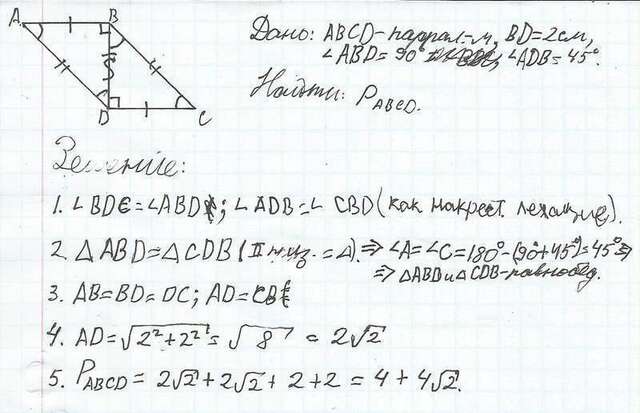 A B D C
Дано: ABCD-паралл-м, BD=2см,
∠ABD=90°, ∠ADB=45°.
Найти: P_ABCD.
Решение:
1. ∠BDC=∠ABD; ∠ADB=∠CBD (как накрест лежащие).
2. △ABD=△CDB (II приз. =△). ⇒ ∠A=∠C=180°-(90°+45°)=45° ⇒
⇒ △ABD и △CDB-равнобед.
3. AB=BD=DC; AD=CB
4. AD=√2²+2² = √8 = 2√2
5. P_ABCD = 2√2+2√2+2+2 = 4+4√2.